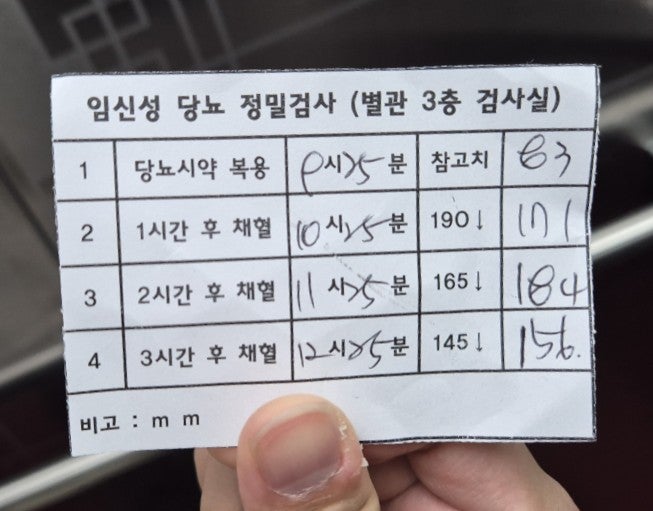 임신성 당뇨 정밀검사 (별관 3층 검사실)
1 당뇨시약 복용 9시25분 참고치 83
2 1시간 후 채혈 10시25분 190↓ 171
3 2시간 후 채혈 11시25분 165↓ 184
4 3시간 후 채혈 12시25분 145↓ 156.
비고 : m m